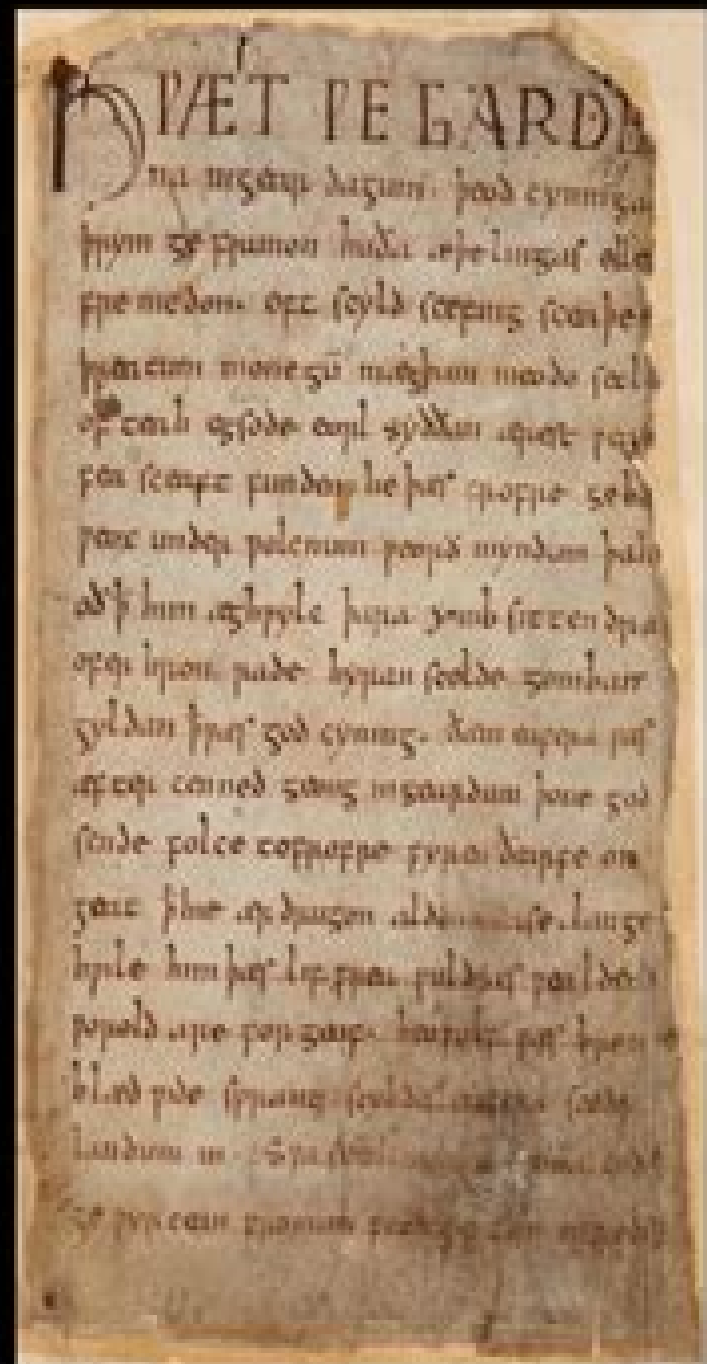 HǷÆT ǷE GARDE
na ingear dagum. þeod cyninga
þrym ge frunon huða æþelingas elle
fre medon. oft scyld scefing sceaþe
þreatum monegū mægþum meodo setla
of teah egsode eorl syððan ærest
fea sceaft funden he þæs frofre geba
ƿeox under ƿolcnum ƿeorð myndum þah
oð ꝥ him æghƿylc þara ymb sittendra
ofer hron rade hyran scolde gomban
gyldan ꝥ ƿæs god cyning. ðæm eafera ƿæs
æfter cenned geong ingeardum þone god
sende folce tofrofre fyren ðearfe on
geat ꝥ hie ær drugon aldor ase. lange
hƿile him þæs lif frea ƿuldres ƿealdend
ƿorold are for geaf. beoƿulf ƿæs breme
blæd ƿide sprang scyldes eafera scede
landum in
ge ƿyrcean fromum